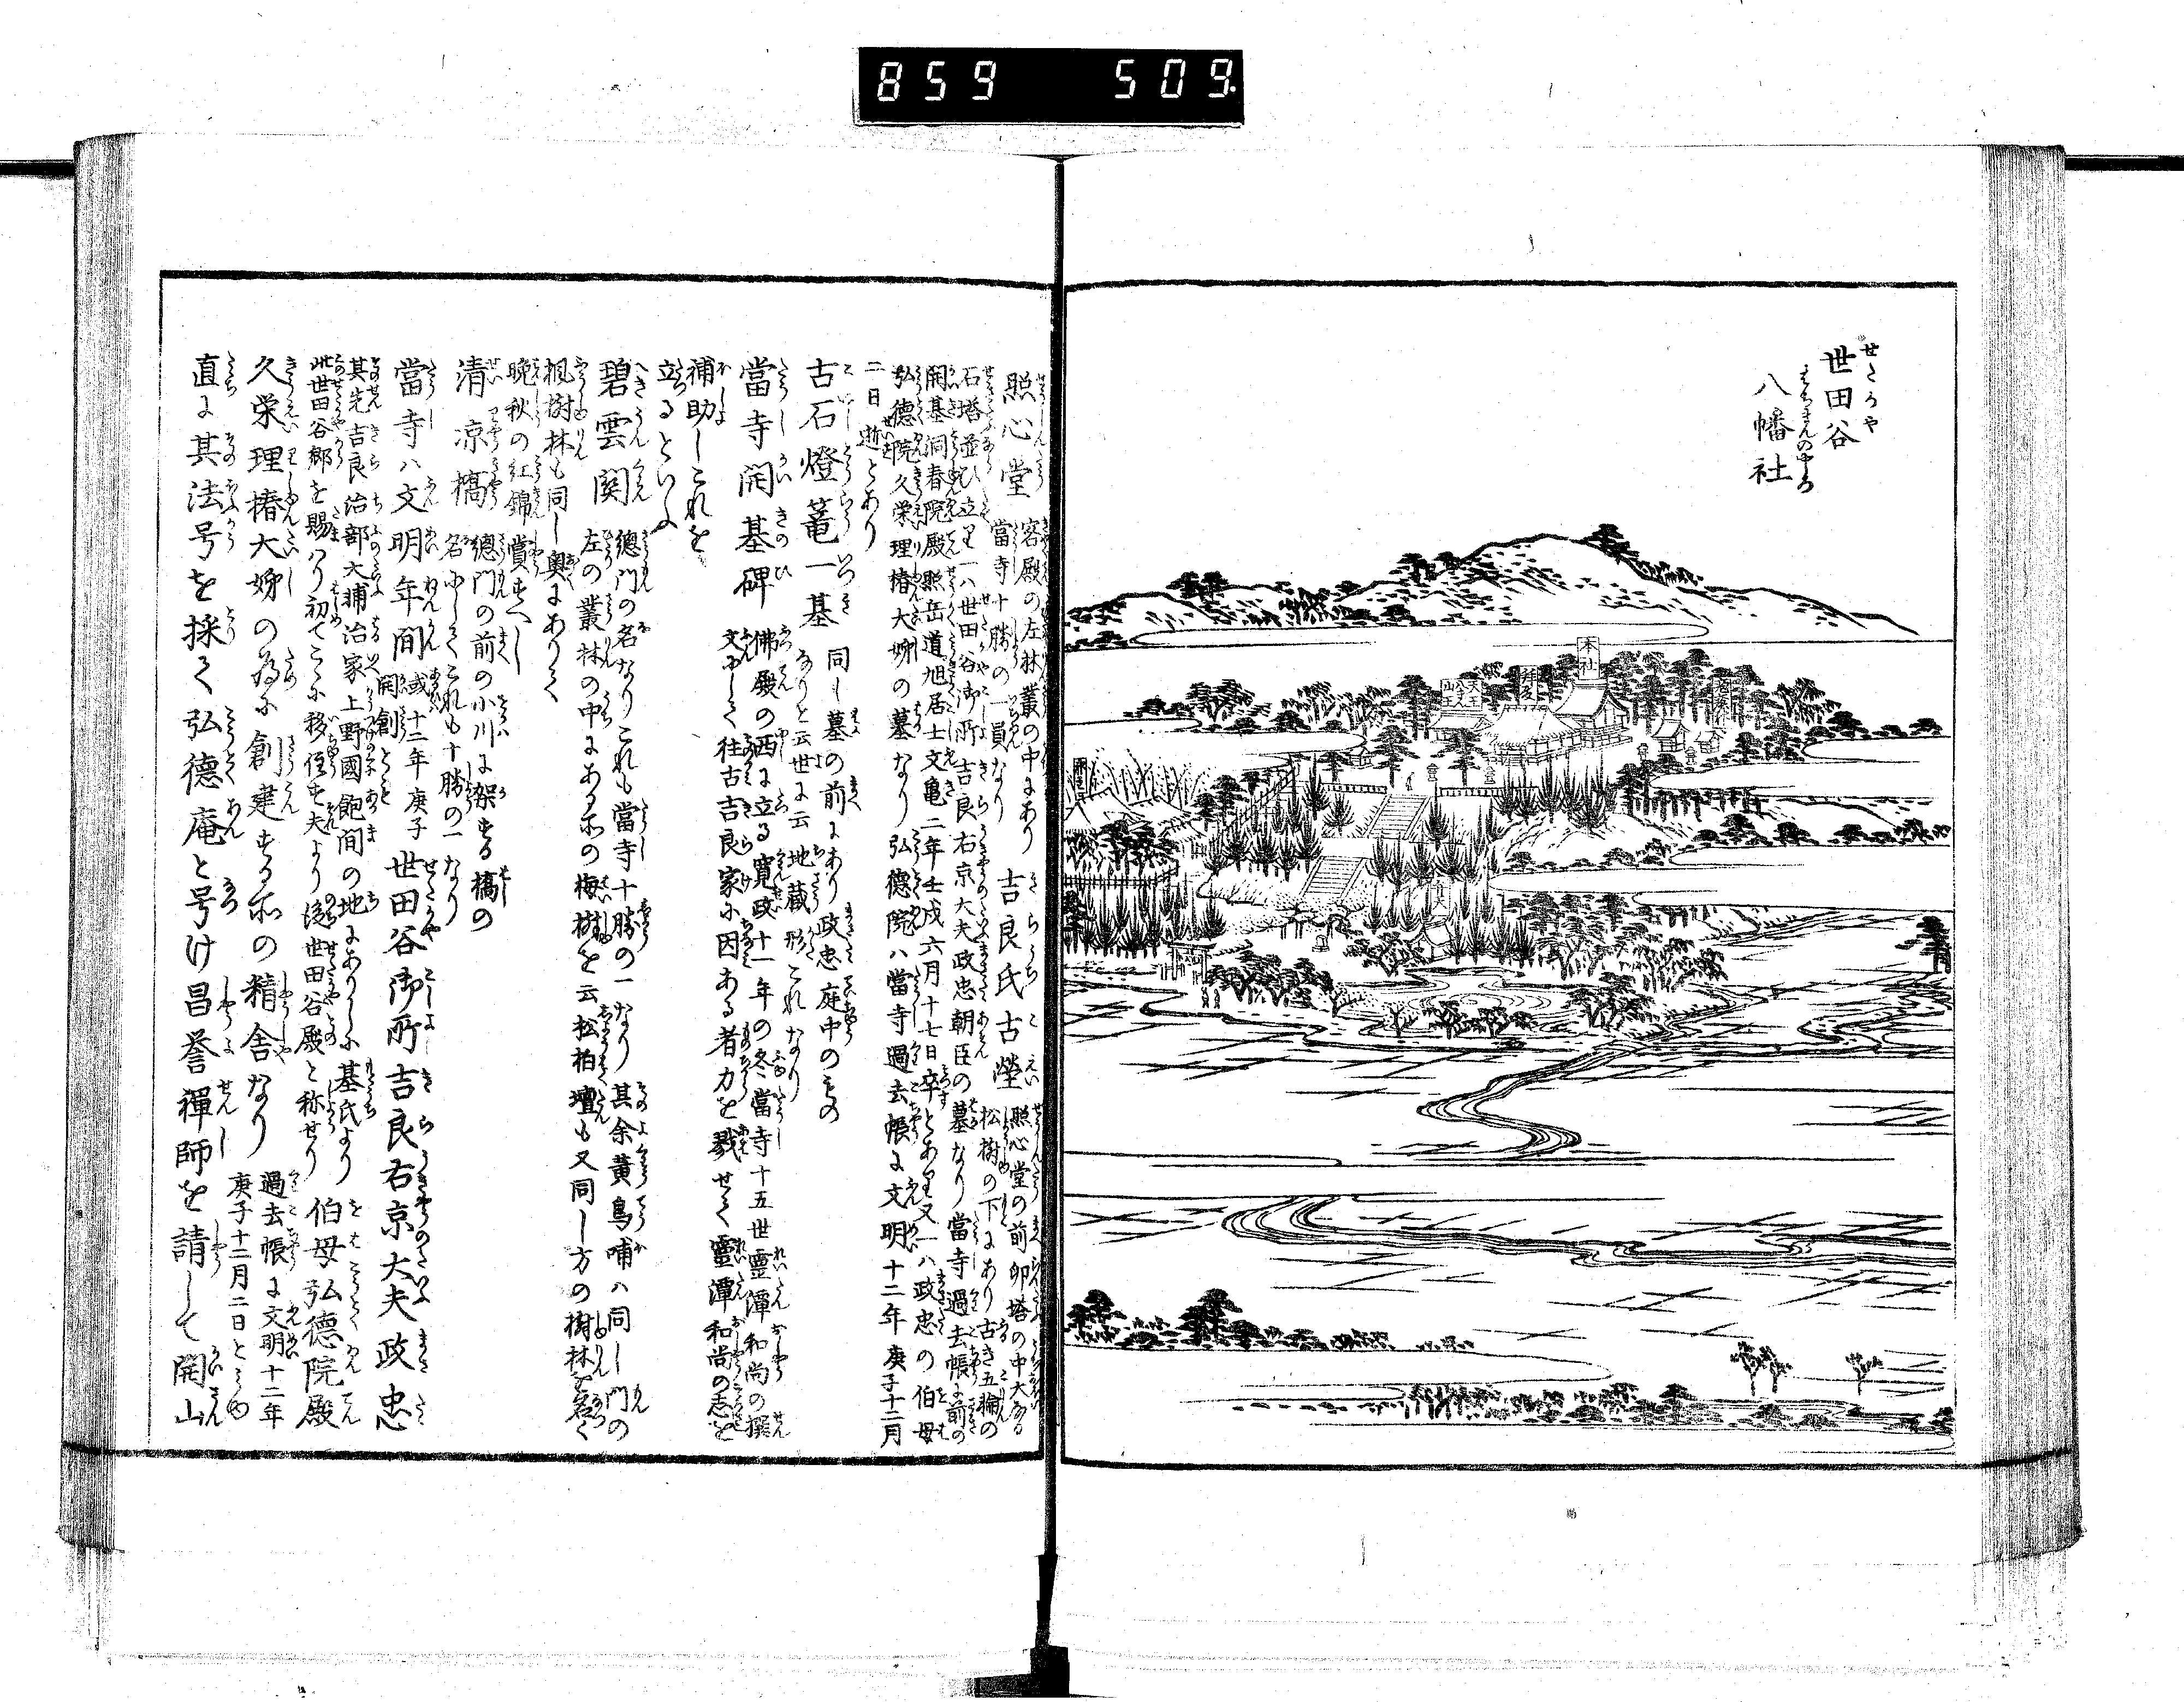 859 509
世田谷
八幡社
本社
照心堂 客殿の左林叢の中にあり
當寺十勝の一員なり
吉良氏古塋 照心堂の前卵塔の中大なる
松樹の下にあり古き五輪の
石塔並ひ立り一ハ世田谷御所吉良右京大夫政忠朝臣の墓なり當寺過去帳に前の
開基洞春院殿照岳道旭居士文亀二年壬戌六月十七日卒とあり又一ハ政忠の伯母
弘德院久栄理椿大姉の墓なり弘德院ハ當寺過去帳に文明十二年庚子十二月
二日逝とあり
古石燈篭一基 同し墓の前にあり政忠庭中のもの
なりと云世に云地蔵形これなり
當寺開基碑 佛殿の西に立る寛政十一年の冬當寺十五世霊潭和尚の撰
文にして往古吉良家に因ある者力を戮せて霊潭和尚の志を
補助しこれを
立るといふ
碧雲関 總門の名なりこれも當寺十勝の一なり其余黄鳥哺ハ同し門の
左の叢林の中にある所の梅樹を云松柏壇も又同し方の樹林を名く
楓樹林も同し奥にありて
晩秋の紅錦賞すへし
清凉橋 總門の前の小川に架する橋の
名にしてこれも十勝の一なり
當寺ハ文明年間 或十二年庚子
開創とも 世田谷御所吉良右京大夫政忠
其先吉良治部大輔治家上野國飽間の地にありしに基氏より
此世田谷郷を賜ハり初てこゝに移住す夫より後世田谷殿と称せり 伯母弘德院殿
久栄理椿大姉の為に創建する所の精舎なり 過去帳に文明十二年
庚子十二月二日とあり
直に其法号を採て弘德庵と号け昌誉禪師を請して開山